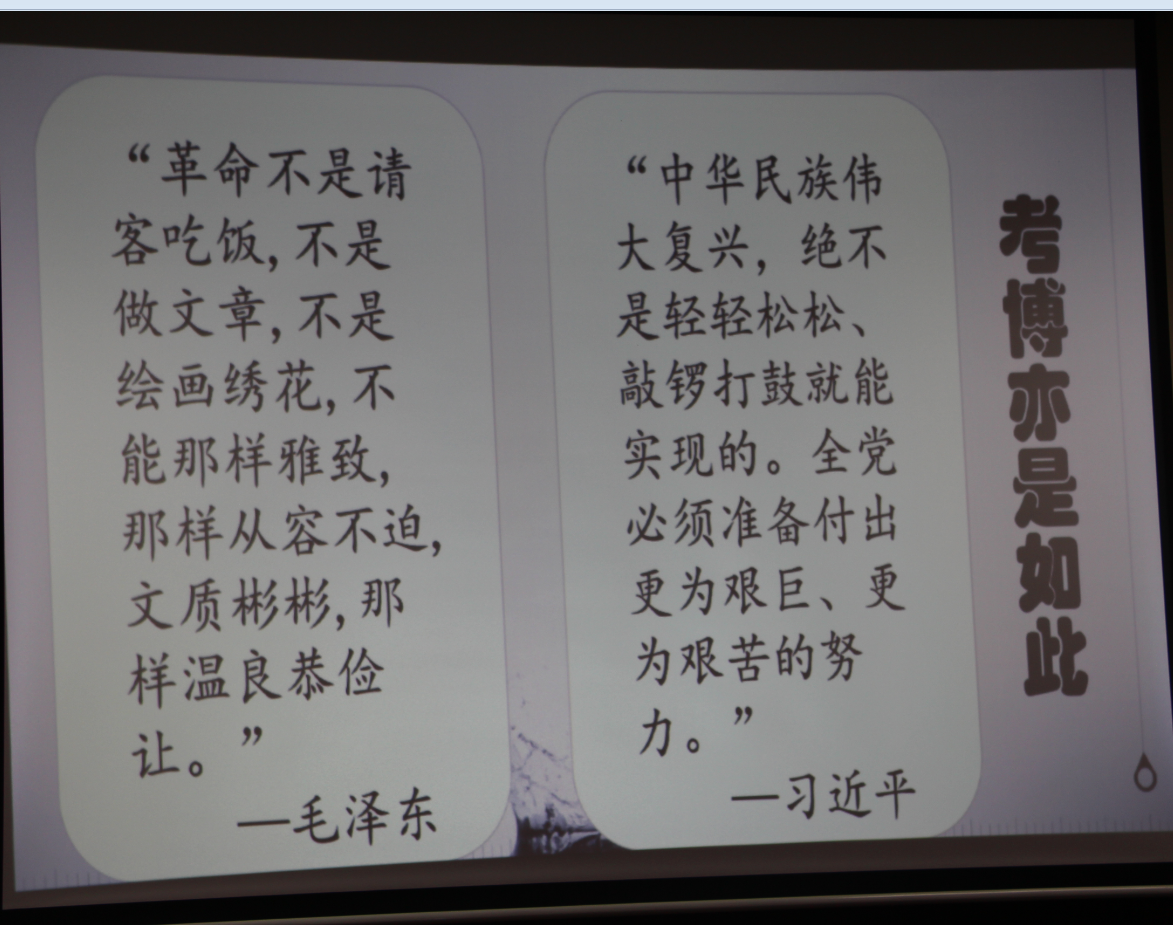 “革命不是请
客吃饭,不是
做文章,不是
绘画绣花,不
能那样雅致,
那样从容不迫,
文质彬彬,那
样温良恭俭
让。”
—毛泽东
“中华民族伟
大复兴，绝不
是轻轻松松、
敲锣打鼓就能
实现的。全党
必须准备付出
更为艰巨、更
为艰苦的努
力。”
—习近平
考博亦是如此